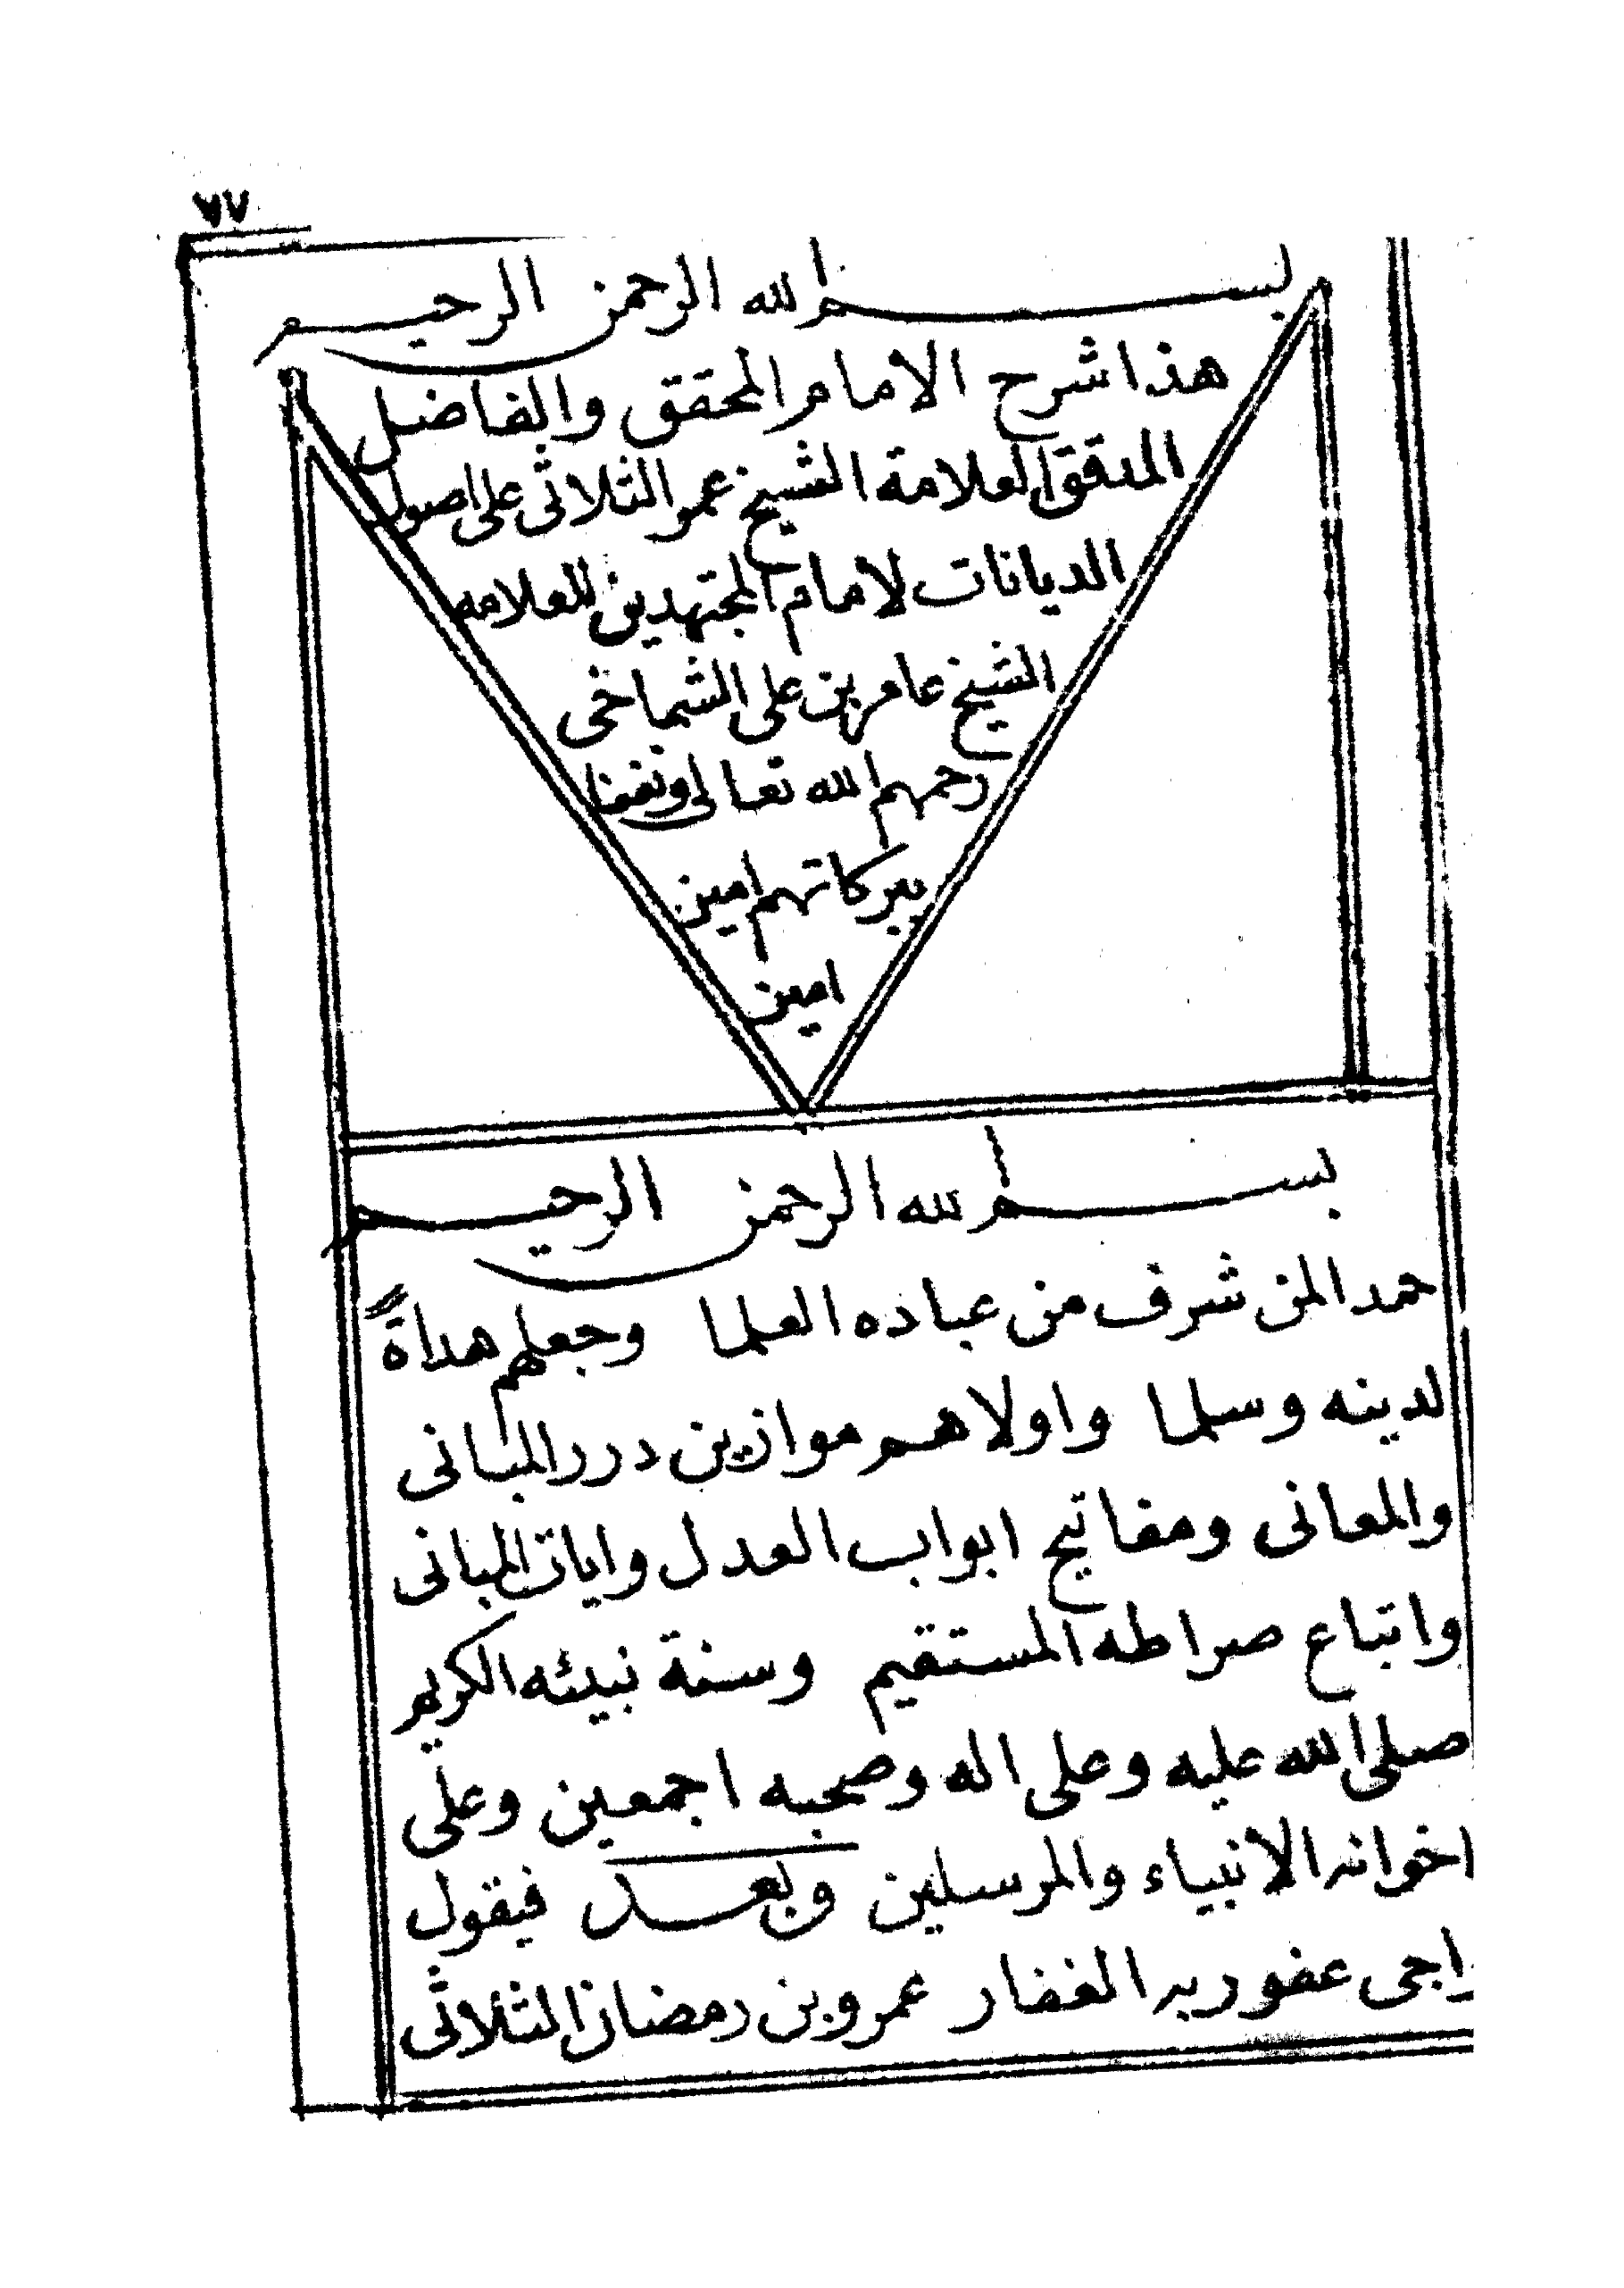 ٧٧
بسم الله الرحمن الرحيم
هذا شرح الامام المحقق والفاضل
المدقق العلامة الشيخ عمر الثلاثى على اصول
الديانات لامام المجتهدين للعلامه
الشيخ عامر بن على الشماخى
رحمهم الله تعالى ونفعنا
ببركاتهم امين
امين
بسم الله الرحمن الرحيم
حمدا لمن شرف من عباده العلما وجعلهم هداةً
لدينه وسلما واولاهم موازين درر المبانى
والمعانى ومفاتيح ابواب العدل وايات المبانى
واتباع صراطه المستقيم وسنة نبيئه الكريم
صلى الله عليه وعلى اله وصحبه اجمعين وعلى
اخوانه الانبياء والمرسلين وبعد فيقول
راجى عفو ربه الغفار عمرو بن رمضان الثلاثى